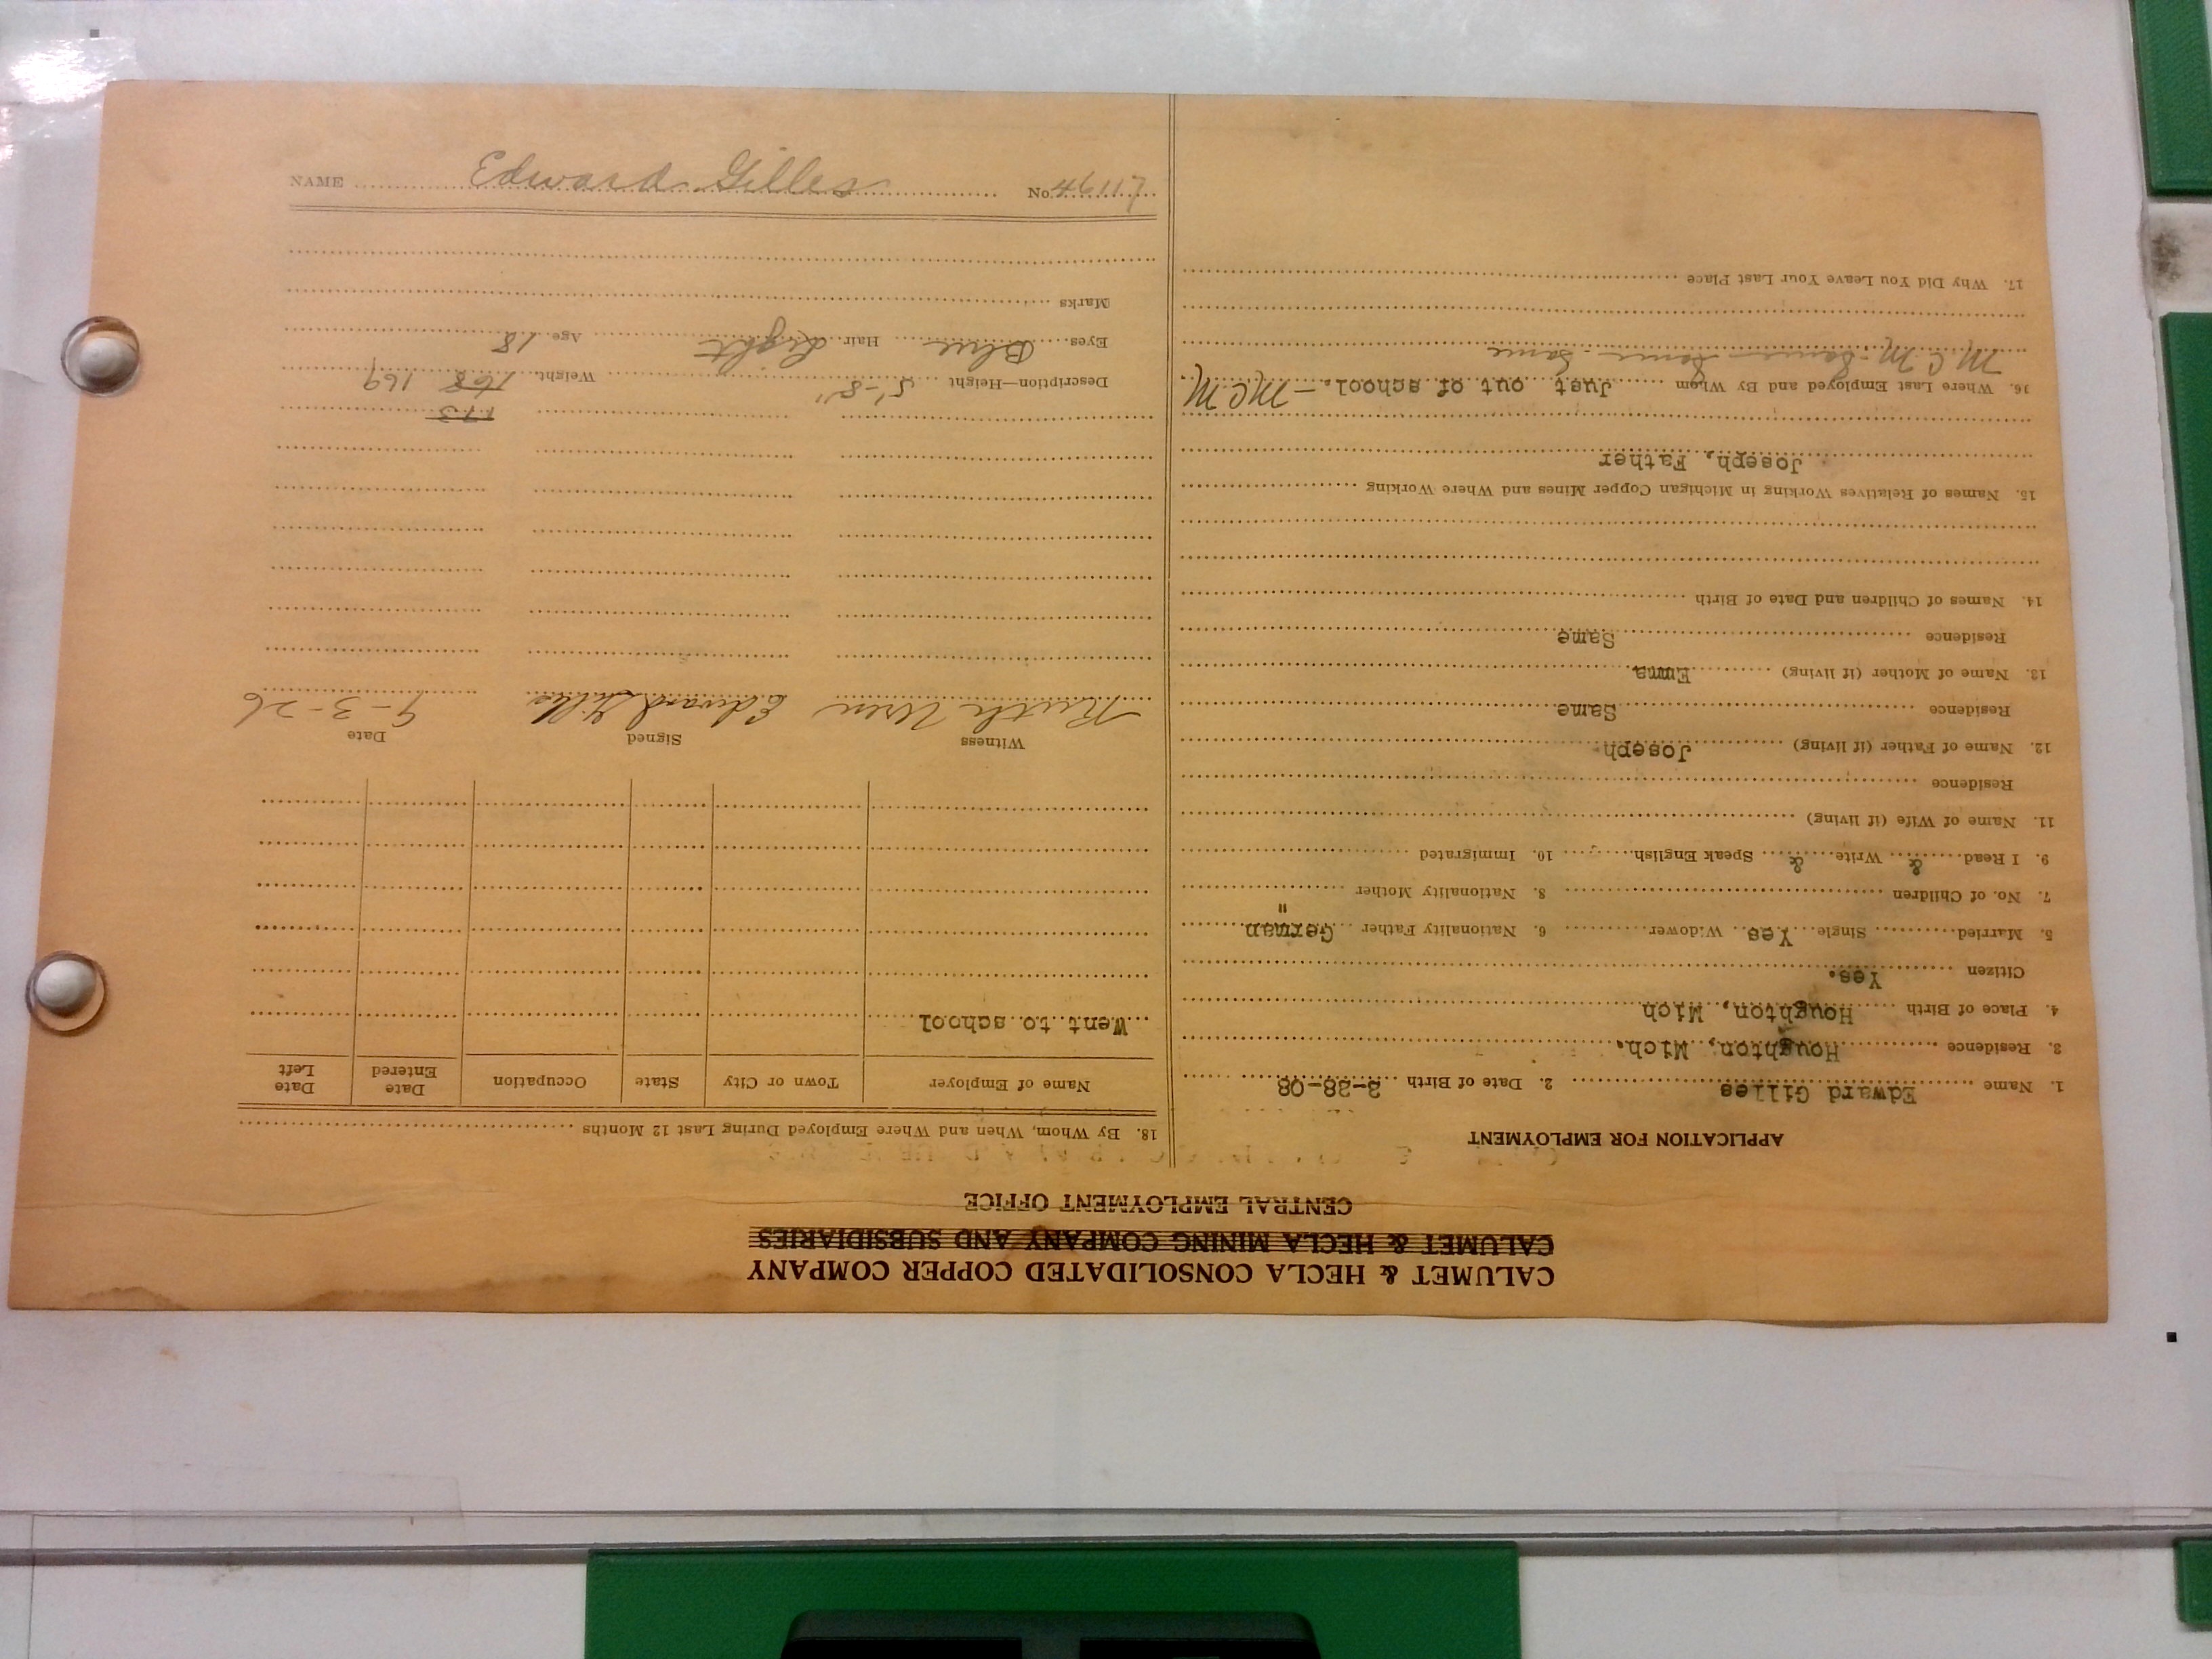 CALUMET & HECLA CONSOLIDATED COPPER COMPANY
CALUMET & HECLA MINING COMPANY AND SUBSIDIARIES
CENTRAL EMPLOYMENT OFFICE
APPLICATION FOR EMPLOYMENT
1. Name Edward Gilles 2. Date of Birth 2-28-08
3. Residence Houghton, Mich.
4. Place of Birth Houghton, Mich
Citizen Yes.
5. Married Single Yes Widower 6. Nationality Father German
7. No. of Children 8. Nationality Mother "
9. I Read & Write & Speak English 10. Immigrated
11. Name of Wife (if living)
Residence
12. Name of Father (if living) Joseph
Residence Same
13. Name of Mother (if living) Emma
Residence Same
14. Names of Children and Date of Birth
15. Names of Relatives Working in Michigan Copper Mines and Where Working
Joseph, Father
16. Where Last Employed and By Whom Just out of school. - M C M
M C M - Same - Same - Same
17. Why Did You Leave Your Last Place
18. By Whom, When and Where Employed During Last 12 Months
Name of Employer Town or City State Occupation Date Entered Date Left
Went to school
Witness Signed Date
Ruth Uren Edward Gilles 9-3-26
173
Description—Height 5'-8" Weight 168 169
Eyes Blue Hair Light Age 18
Marks
NAME Edward Gilles No. 46117